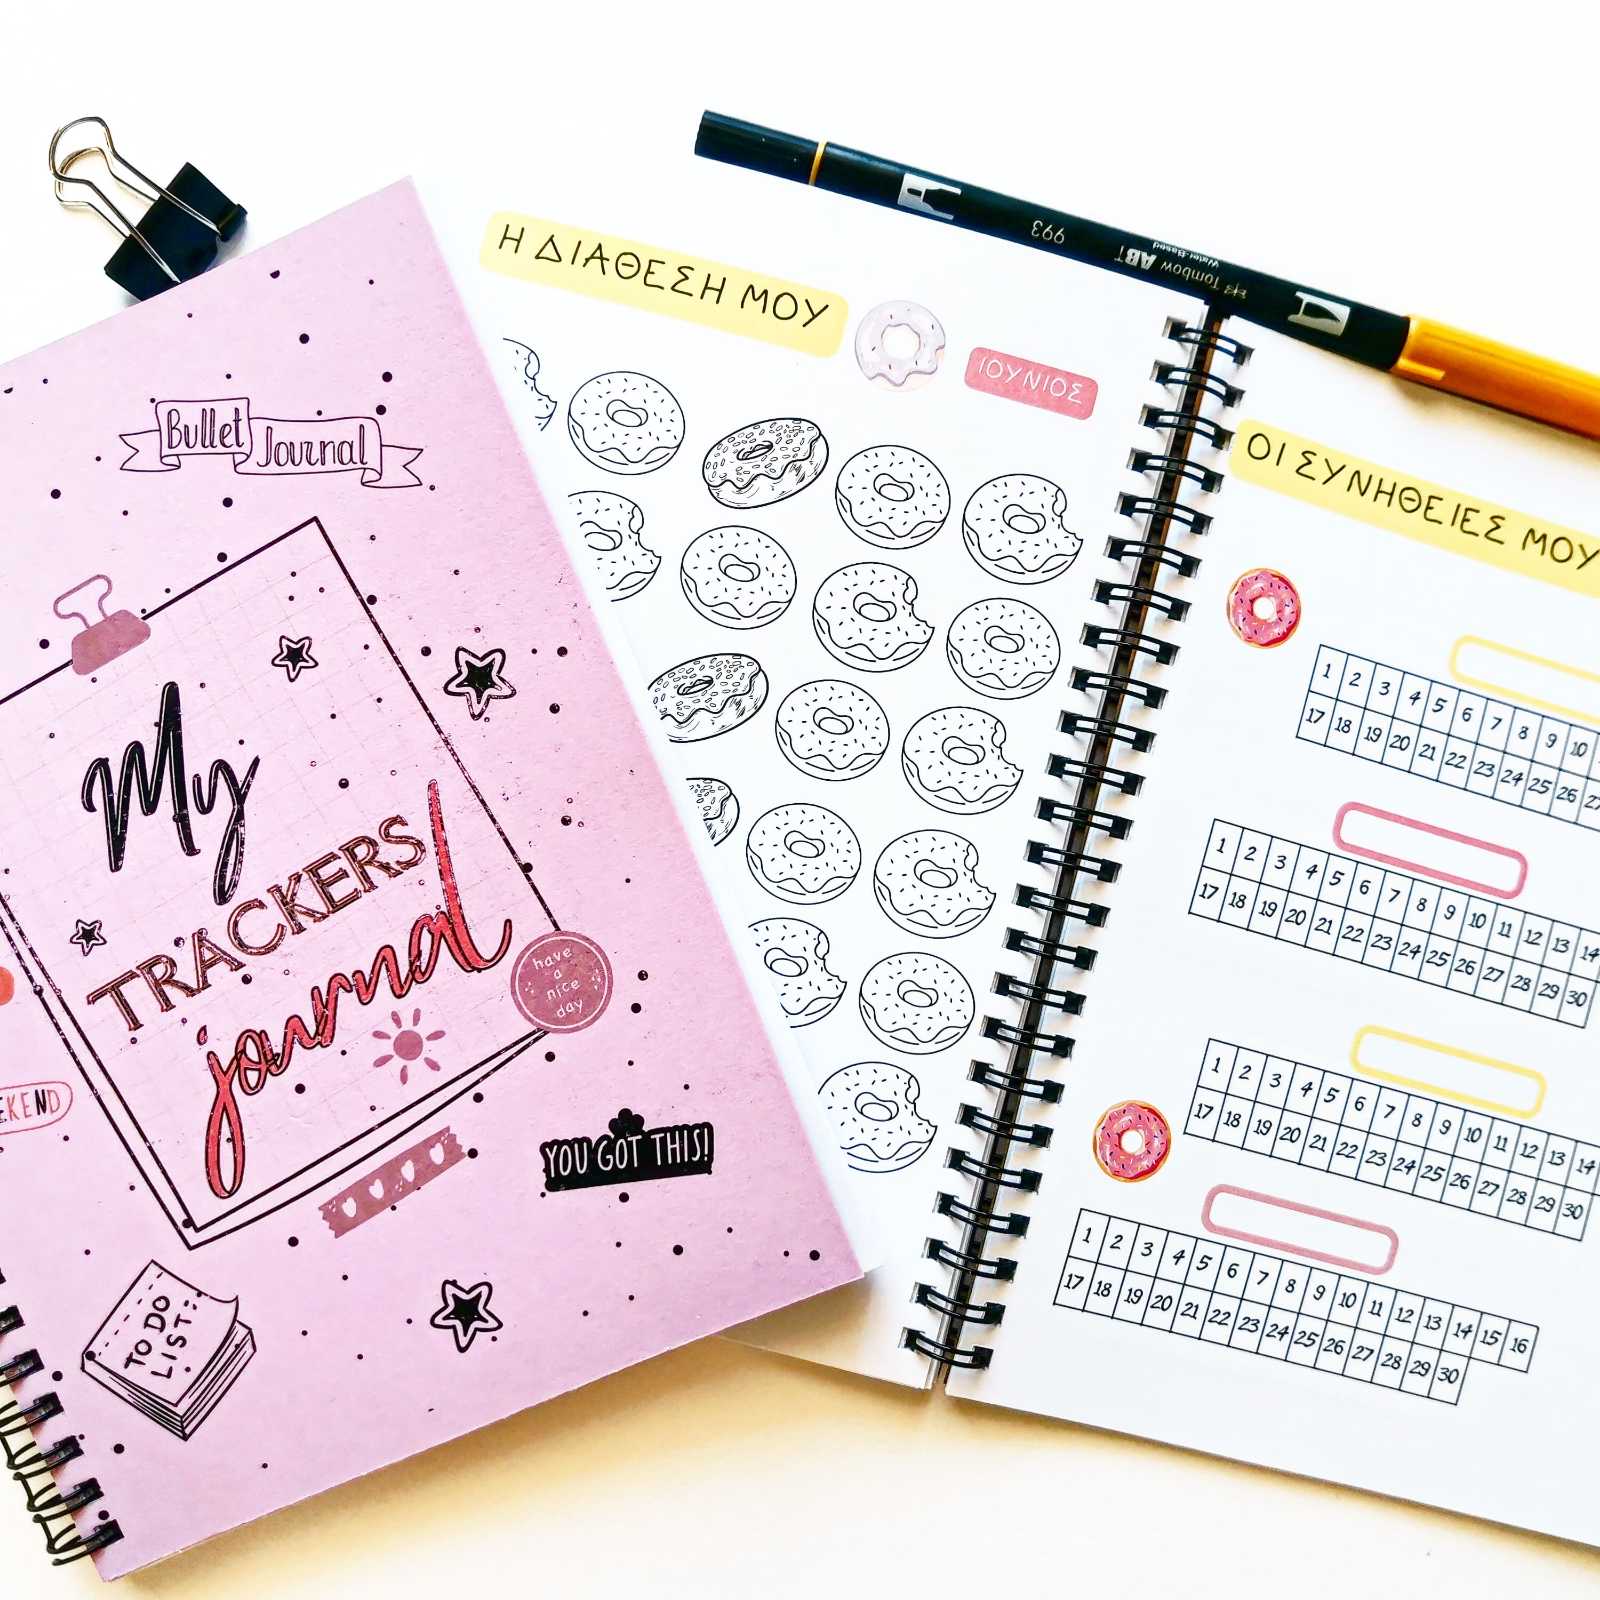 Bullet Journal
My
TRACKERS
journal
have
a
nice
day
EKEND
YOU GOT THIS!
TO DO
LIST
Η ΔΙΑΘΕΣΗ ΜΟΥ
ΙΟΥΝΙΟΣ
993
Tombow ABT
Water-Based
ΟΙ ΣΥΝΗΘΕΙΕΣ ΜΟΥ
1 2 3 4 5 6 7 8 9 10
17 18 19 20 21 22 23 24 25 26 27
1 2 3 4 5 6 7 8 9 10 11 12 13 14
17 18 19 20 21 22 23 24 25 26 27 28 29 30
1 2 3 4 5 6 7 8 9 10 11 12 13 14
17 18 19 20 21 22 23 24 25 26 27 28 29 30
1 2 3 4 5 6 7 8 9 10 11 12 13 14 15 16
17 18 19 20 21 22 23 24 25 26 27 28 29 30